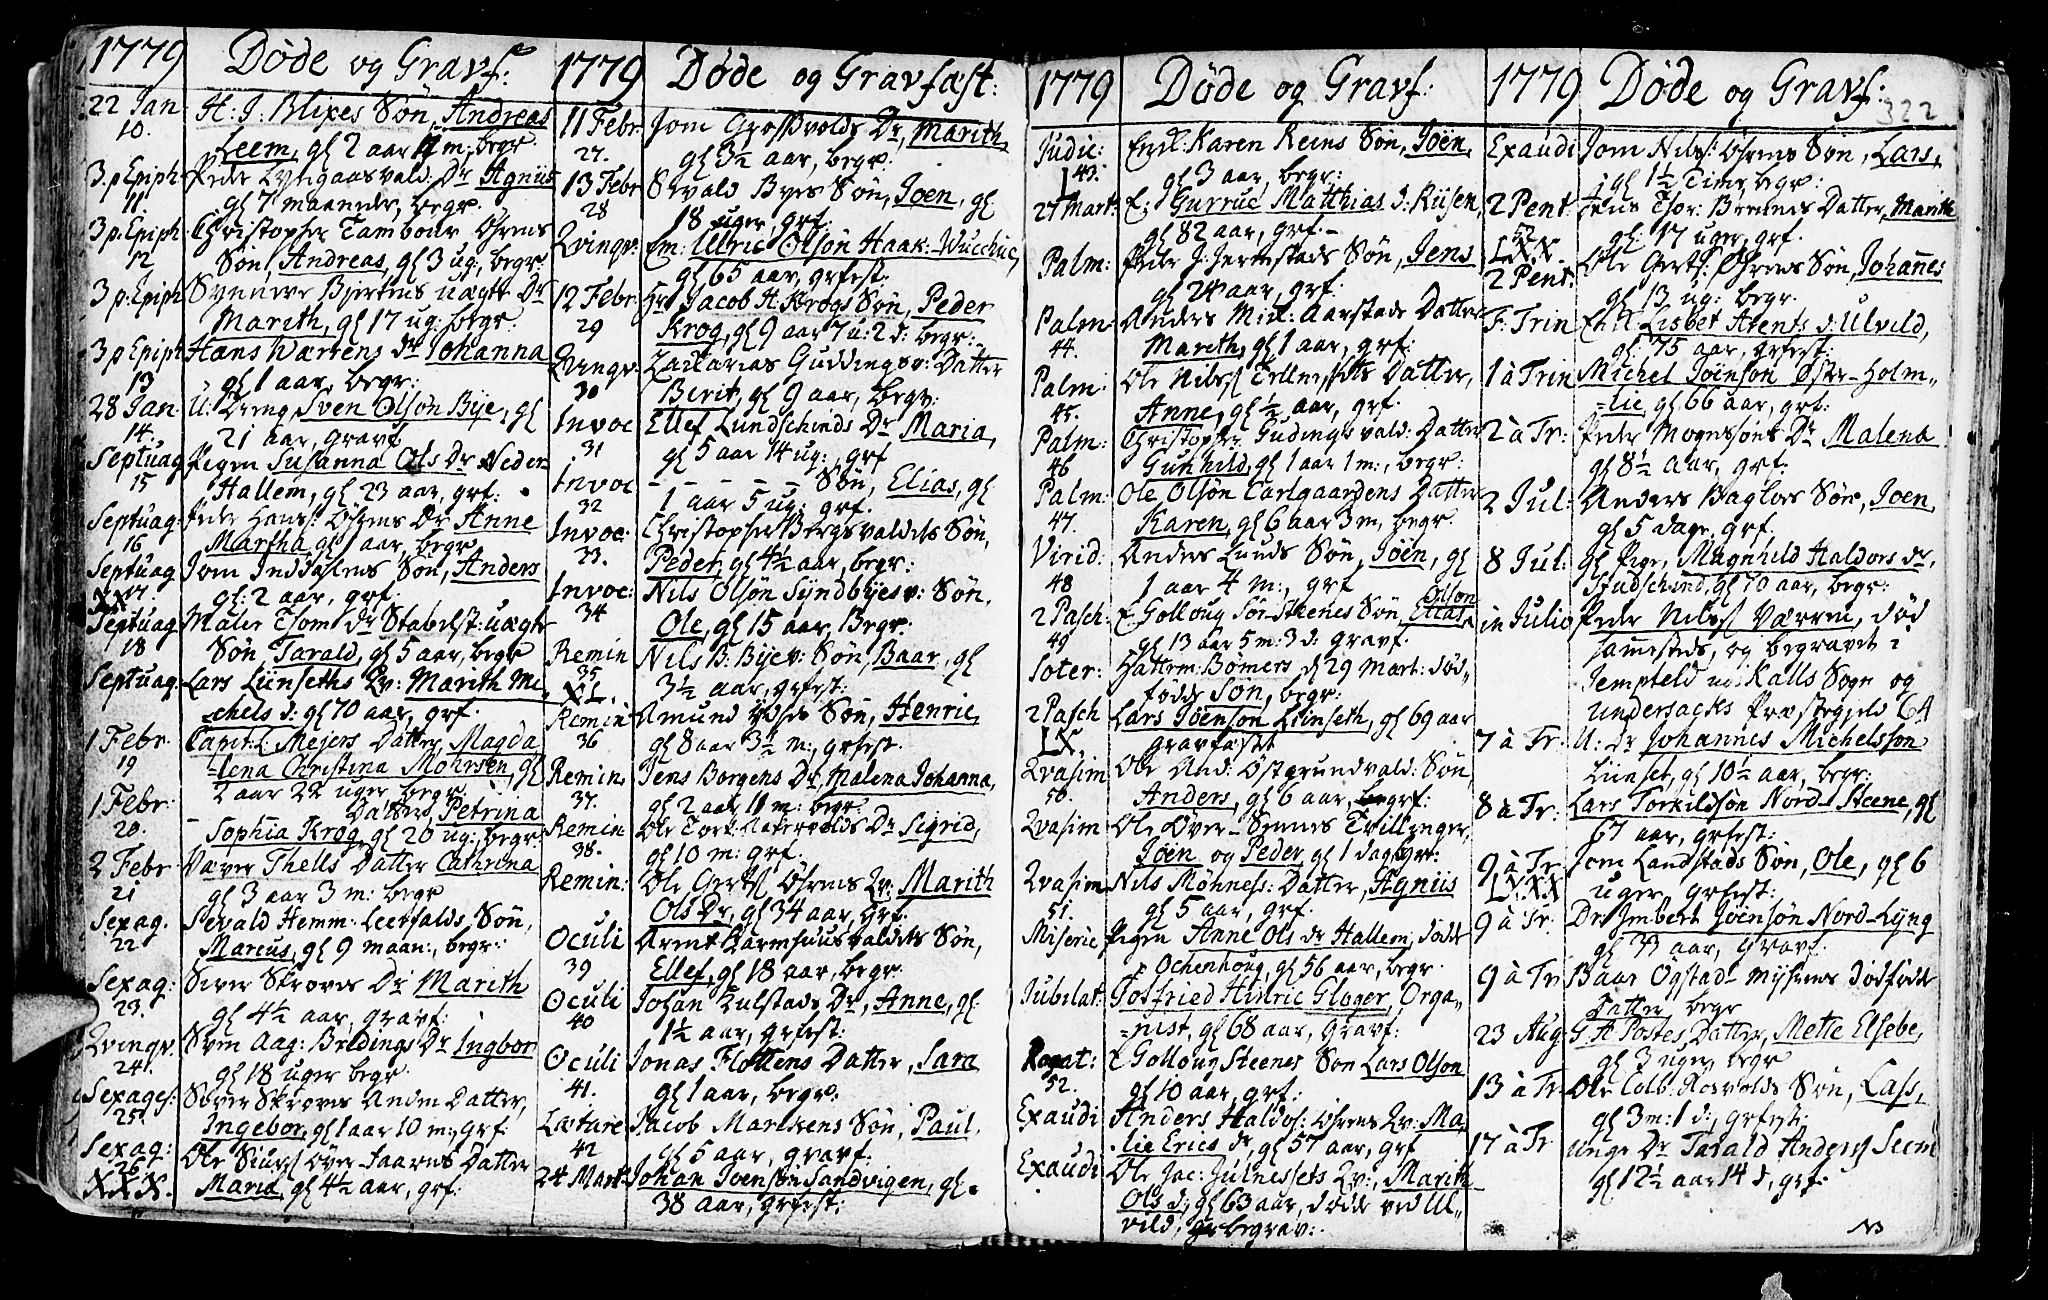 1779 Døde og Gravf:
22 Jan H: J: Blixes Søn, Andreas
10. Leem, gl 2 aar 11 m; begr.
3. p Epiph Peder Lyngaasvald: Dr Agniis
11 gl 7 maaneder, begr.
3 p. Epiph: Christopher Tambour Øhrens
12 Søn, Andreas, gl 3 ug:, begr
3 p: Epiph Synneve Bjertnes uægte Dr
Marith, gl 17 ug: begr:
3 p Epiph Hans Wærrens Dr Johanna
13 gl 1 aar, begr:
28 Jan U: Dreng, Sven Olsøn Bÿe, gl
14. 21 aar, gravf
Septuag Pigen Susanna Ols Dr Neder
15 Hallem, gl 23 aar, grf:
Septuag: Peder Hans: Øhrens Dr Anne
16 Martha, gl 1 aar, begr
Septuag Jom Inddalens Søn, Anders
17. gl: 2 aar, grf:
XX
Septuag Maler Thom: Dr Stabelst: uægte
18 Søn Tarald, gl 5 aar, begr
Septuag: Lars Liinseths Qv: Marith Mi
chels d: gl 70 aar, grf.
1 Febr. Capit: L Mejers Datter, Magda
19 -lena Christina Mohrsen, gl
2 aar 22 uger begr
1 Febr: - Datter, Petrina
20. Sophia Krog, gl 20 ug:, begr:
2 Febr Væver Thells Datter Cathrina
21 gl 3 aar 3 m: begr
Sexag. Sevald Hemm: Leerfalds Søn,
22 Marcus, gl 9 maan:, begr:
Sexag: Siver Skroves Dr Marith
23. gl 4½ aar, gravf:
Qvinqv. Sven Aag: Beldings Dr Ingbor
24. gl 18 uger begr
Sexages: Siver Skroves Anden Datter,
25. Ingebor, gl 1 aar 10 m:, grf:
Sexag: Ole Siurs: Over-Jaarens Datter
26 Maria, gl 4½ aar, grf:
XXX.
1779 Døde og Gravfæst:
11 Febr Jom Grossvolds Dr, Marith,
27. gl 3½ aar, begr:
13 Febr Sevald Byes Søn, Joen, gl
28 18 uger, grf.
Qvinqv: Em: Ulric Olsøn Haak: Wucchuc,
gl 65 aar, grfest:
12 Febr Hr Jacob H: Krogs Søn, Peder
29 Krog, gl 9 aar 7 u: 2 d: begr:
Qvinqv. Zacharias Guddingsv: Datter
30 Berit, gl 9 aar, begr:
Invoc Ellef Lundschinds Dr Maria,
31 gl 5 aar 14 ug:, grf
Invoc - - - - - Søn, Elias, gl
32 1 aar 5 ug, grf.
Invoc: Christopher Bergsvaldets Søn,
33. Peder, gl 4½ aar, begr:
Invoc: Nils Olsøn Syndbyesv: Søn,
34 Ole, gl 15 aar, Begr.
Remin Nils B: Byev: Søn, Baar, gl
35 3½ aar, grfest:
XL.
Remin Amund Ydses Søn, Henric,
36 gl 8 aar 3½ m:, grfest.
Remin, Jens Borgens Dr, Malena Johanna,
37. gl 2 aar 11 m: begr
Remin Ole Tork: Sigrid,
38. gl 10 m: grf.
Remin: Ole Gerts: Øhrens Qv: Marith
Ols Dr, gl 34 aar, Grf.
Oculi Arent Karmhuusvaldets Søn,
39 Ellef, gl 18 aar, begr.
Oculi Johan Tulstads Dr, Anne, gl
40 1½ aar, grfest:
Oculi Jonas Flottens Datter, Sara
41. gl 1 aar, begr:
Lætare Jacob Marckens Søn, Paul,
42 gl 5 aar, gravf.
24 Mart Johan Joensøn Sandvigen, gl.
38 aar, grfest:
1779 Døde og Gravf:
Judic: Enk: Karen Reins Søn, Joen,
43. gl 3 aar, begr:
21 Mart: E: Gurruc Matthias d: Riisen,
gl 82 aar, grf.-
Palm: Peder J: Jermstads Søn, Jens
gl 24 aar, grf:
Palm Anders Mich: Aarstads Datter
44. Mareth, gl 1 aar, grf:
Palm: Ole Nilss: Tellnessets Datter,
45. Anne, gl ½ aar, grf.
Palm: Christopher Gudings vald: Datter
46 Gunhild, gl 1 aar 1 m:, begr:
Palm: Ole Olsøn Carlgaardens Datter
47. Karen, gl 6 aar 3 m, begr
Virid: Anders Lunds Søn, Joen, gl
48 1 aar 4 m:, grf
2 Pasch: E Golloug Sør-Steenes Søn, Elias Olsøn
49 gl 13 aar 5 m: 3 d: gravf.
Soter: Hattem: Bømers d 29 Mart: død-
fødde Søn, begr:
2 Pasch Lars Joenson Liinseth, gl 69 aar
LX. gravfæstet
Qvasim Ole And: Østgrundvald: Søn,
50. Anders, gl 6 aar, grf:
Qvasim Ole Over-Sennes Tvillinger,
Joen og Peder, gl 1 dag, grf:
Qvasim Nils Mönness: Datter, Agniis
51. gl 5 aar, grf.
Miseric Pigen Anne Ols dr Hallem, døde
p Ochenhoug, gl 56 aar, begr.
Jubilat: Gotfried Hinric Gloger, Orga-
=nist, gl 68 aar, gravf:
Rogat: E Golloug Steenes Søn Lars Olsøn
52. gl 10 aar, grf:
Exaudi Anders Haldos: Øhrens Qv: Ma
lie Erics dr, gl 57 aar, grf
Exaudi Ole Jac: Julnessets Qv:, Marith
Ols d: gl 63 aar, døde ved Ul-
vild, begrav:
1779 Døde og Gravf:
322
Exaudi Jom Nilss: Øhrens Søn, Lars,
gl 1½ Time, begr:
2 Pent. Jens Thor: Brennes Datter, Marith
52 gl: 17 uger, grf.
LXX.
2 Pent. Ole Gerts: Øhrens Søn, Johannes
gl 13 ug: begr.
F: Trin Enk: Lisbet Arents d: Ulvild,
gl: 75 aar, grfest:
1 à Trin Michel Joensøn Øster-Holm-
=lie gl 66 aar, grf:
2 à Tr: Peder Mogensøns Dr Malena
gl 8½ aar, grf:
2 Jul: Anders Baglos Søn, Joen,
gl 5 dage, grf.
8 Jul: gl Pige, Magnhild Haldors dr,
Studschind, gl 70 aar, begr:
in Julio Peder Nilss: Værren, død
sammesteds, og begravet i
Jempteld Kalls Sogn og
undersacks Præstegjeld 64
7 à Tr: U: Dr Johannes Michelssøn
Liinset, gl 10½ aar, begr:
8 à Tr: Lars Torkildsøn Nord-Steene, gl
67 aar, grfest:
9 à Tr Jom Landstads Søn, Ole, gl 6
LXXX uger, grfest:
9 à Tr. Dr Imbert Joensøn Nord-Lÿng
gl aar, gravf:
9 à Tr Baar Øgstad-Myhrens dødfødde
Datter begr
23 Aug G: A Postes Datter, Mette Elsebe,
gl 3 uger, begr
13 à Tr Ole Colb: Rosvolds Søn, Lass,
gl 3 m: 1 d:, grfest:
17 à Tr unge Dr Tarald Anderss: Leem
gl 12½ aar 14 d, grf.